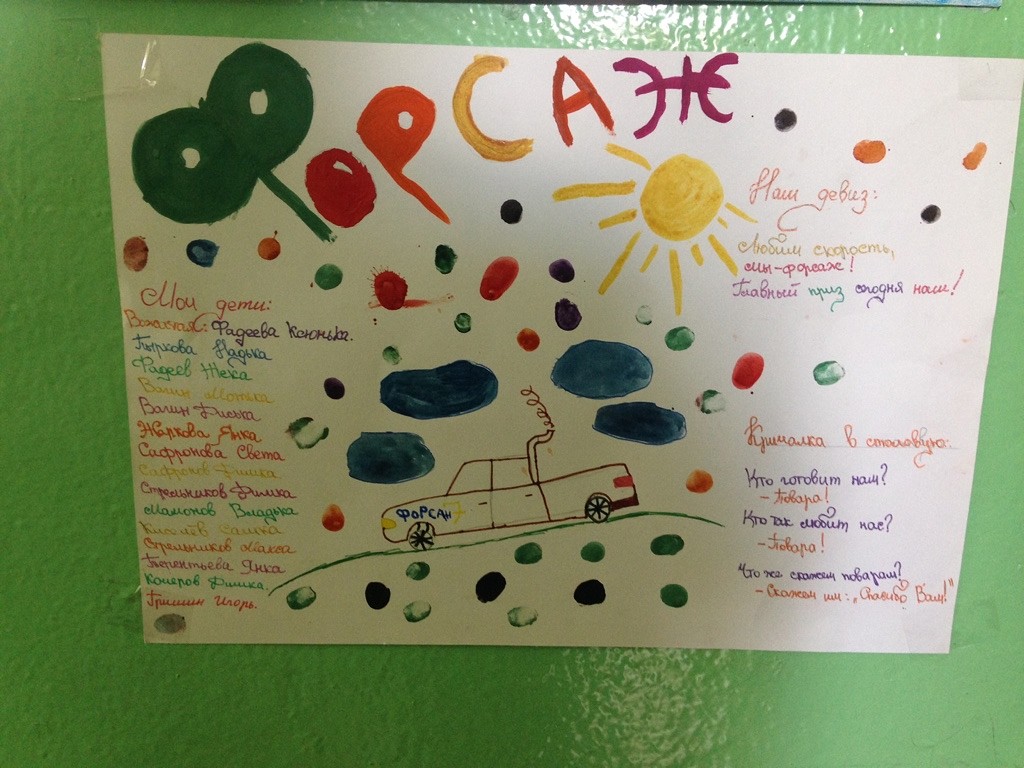 ФОРСАЖ
Мои дети:
Вожатая: Фадеева Ксюнька.
Пыркова Надька
Фадеев Жека
Вагин
Вагин Диська
Жаркова Янка
Сафронова Света
Сафронов Димка
Стрельников Димка
Мамонов Владька
Киселёв Сашка
Стрельников Макса
Терентьева Янка
Кочеров Димка.
Гришин Игорь.
ФОРСАЖ
Наш девиз:
Любим скорость,
мы-форсаж!
Главный приз сегодня наш!
Кричалка в столовую:
Кто готовит нам?
- Повара!
Кто так любит нас?
- Повара!
Что же скажем поварам?
- Скажем им: „Спасибо Вам!"